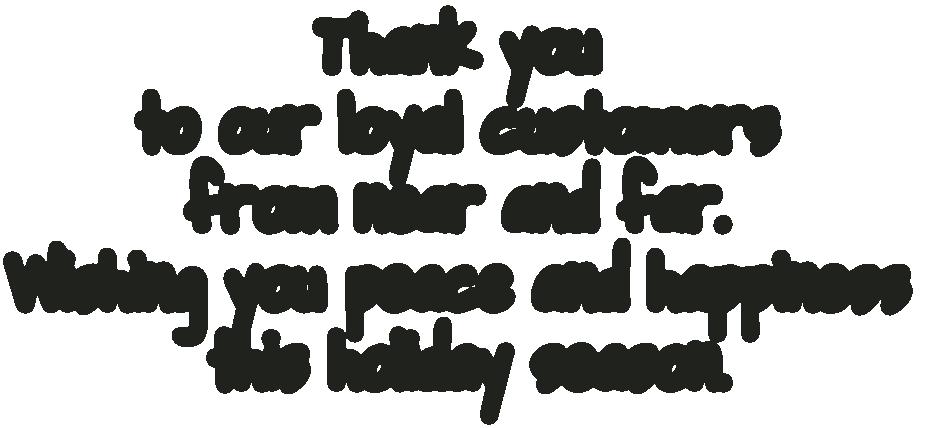 Thank you
to our loyal customers
from near and far.
Wishing you peace and happiness
this holiday season.